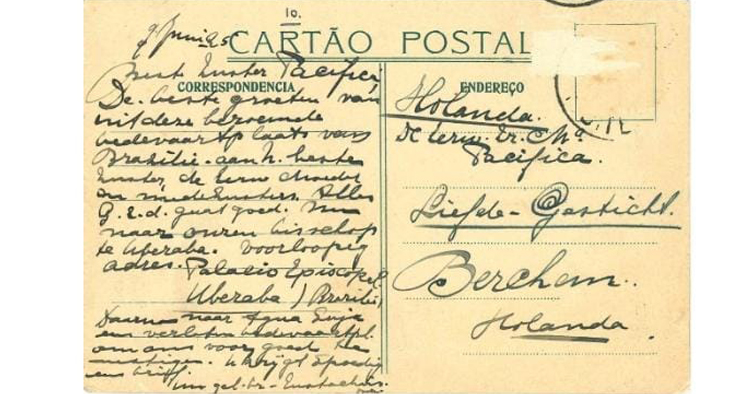 10.
9 Juni 25
CARTÃO POSTAL
CORRESPONDENCIA
Best Zuster Pacifica,
De beste groeten van
uit deze beroemde
bedevaartplaats van
Brazilië. aan h. beste
Zuster, de Eerw Moeder
en medezusters. Alles
G. z. d. gaat goed. Nu
naar onzen bisschop
te Uberaba. Voorloopig
adres. Palacio Episcopal
Uberaba / Brazilië /
Daarna naar Agua Suja
een verlaten bedevaartpl.
om ons voor goed te
vestigen. U krijgt spoedig
een brief.
uw gel. br. Eustachius.
ENDEREÇO
Holanda.
De Eerw. Zr. Ma
Pacifica.
Liefde-Gesticht.
Berchem.
Holanda